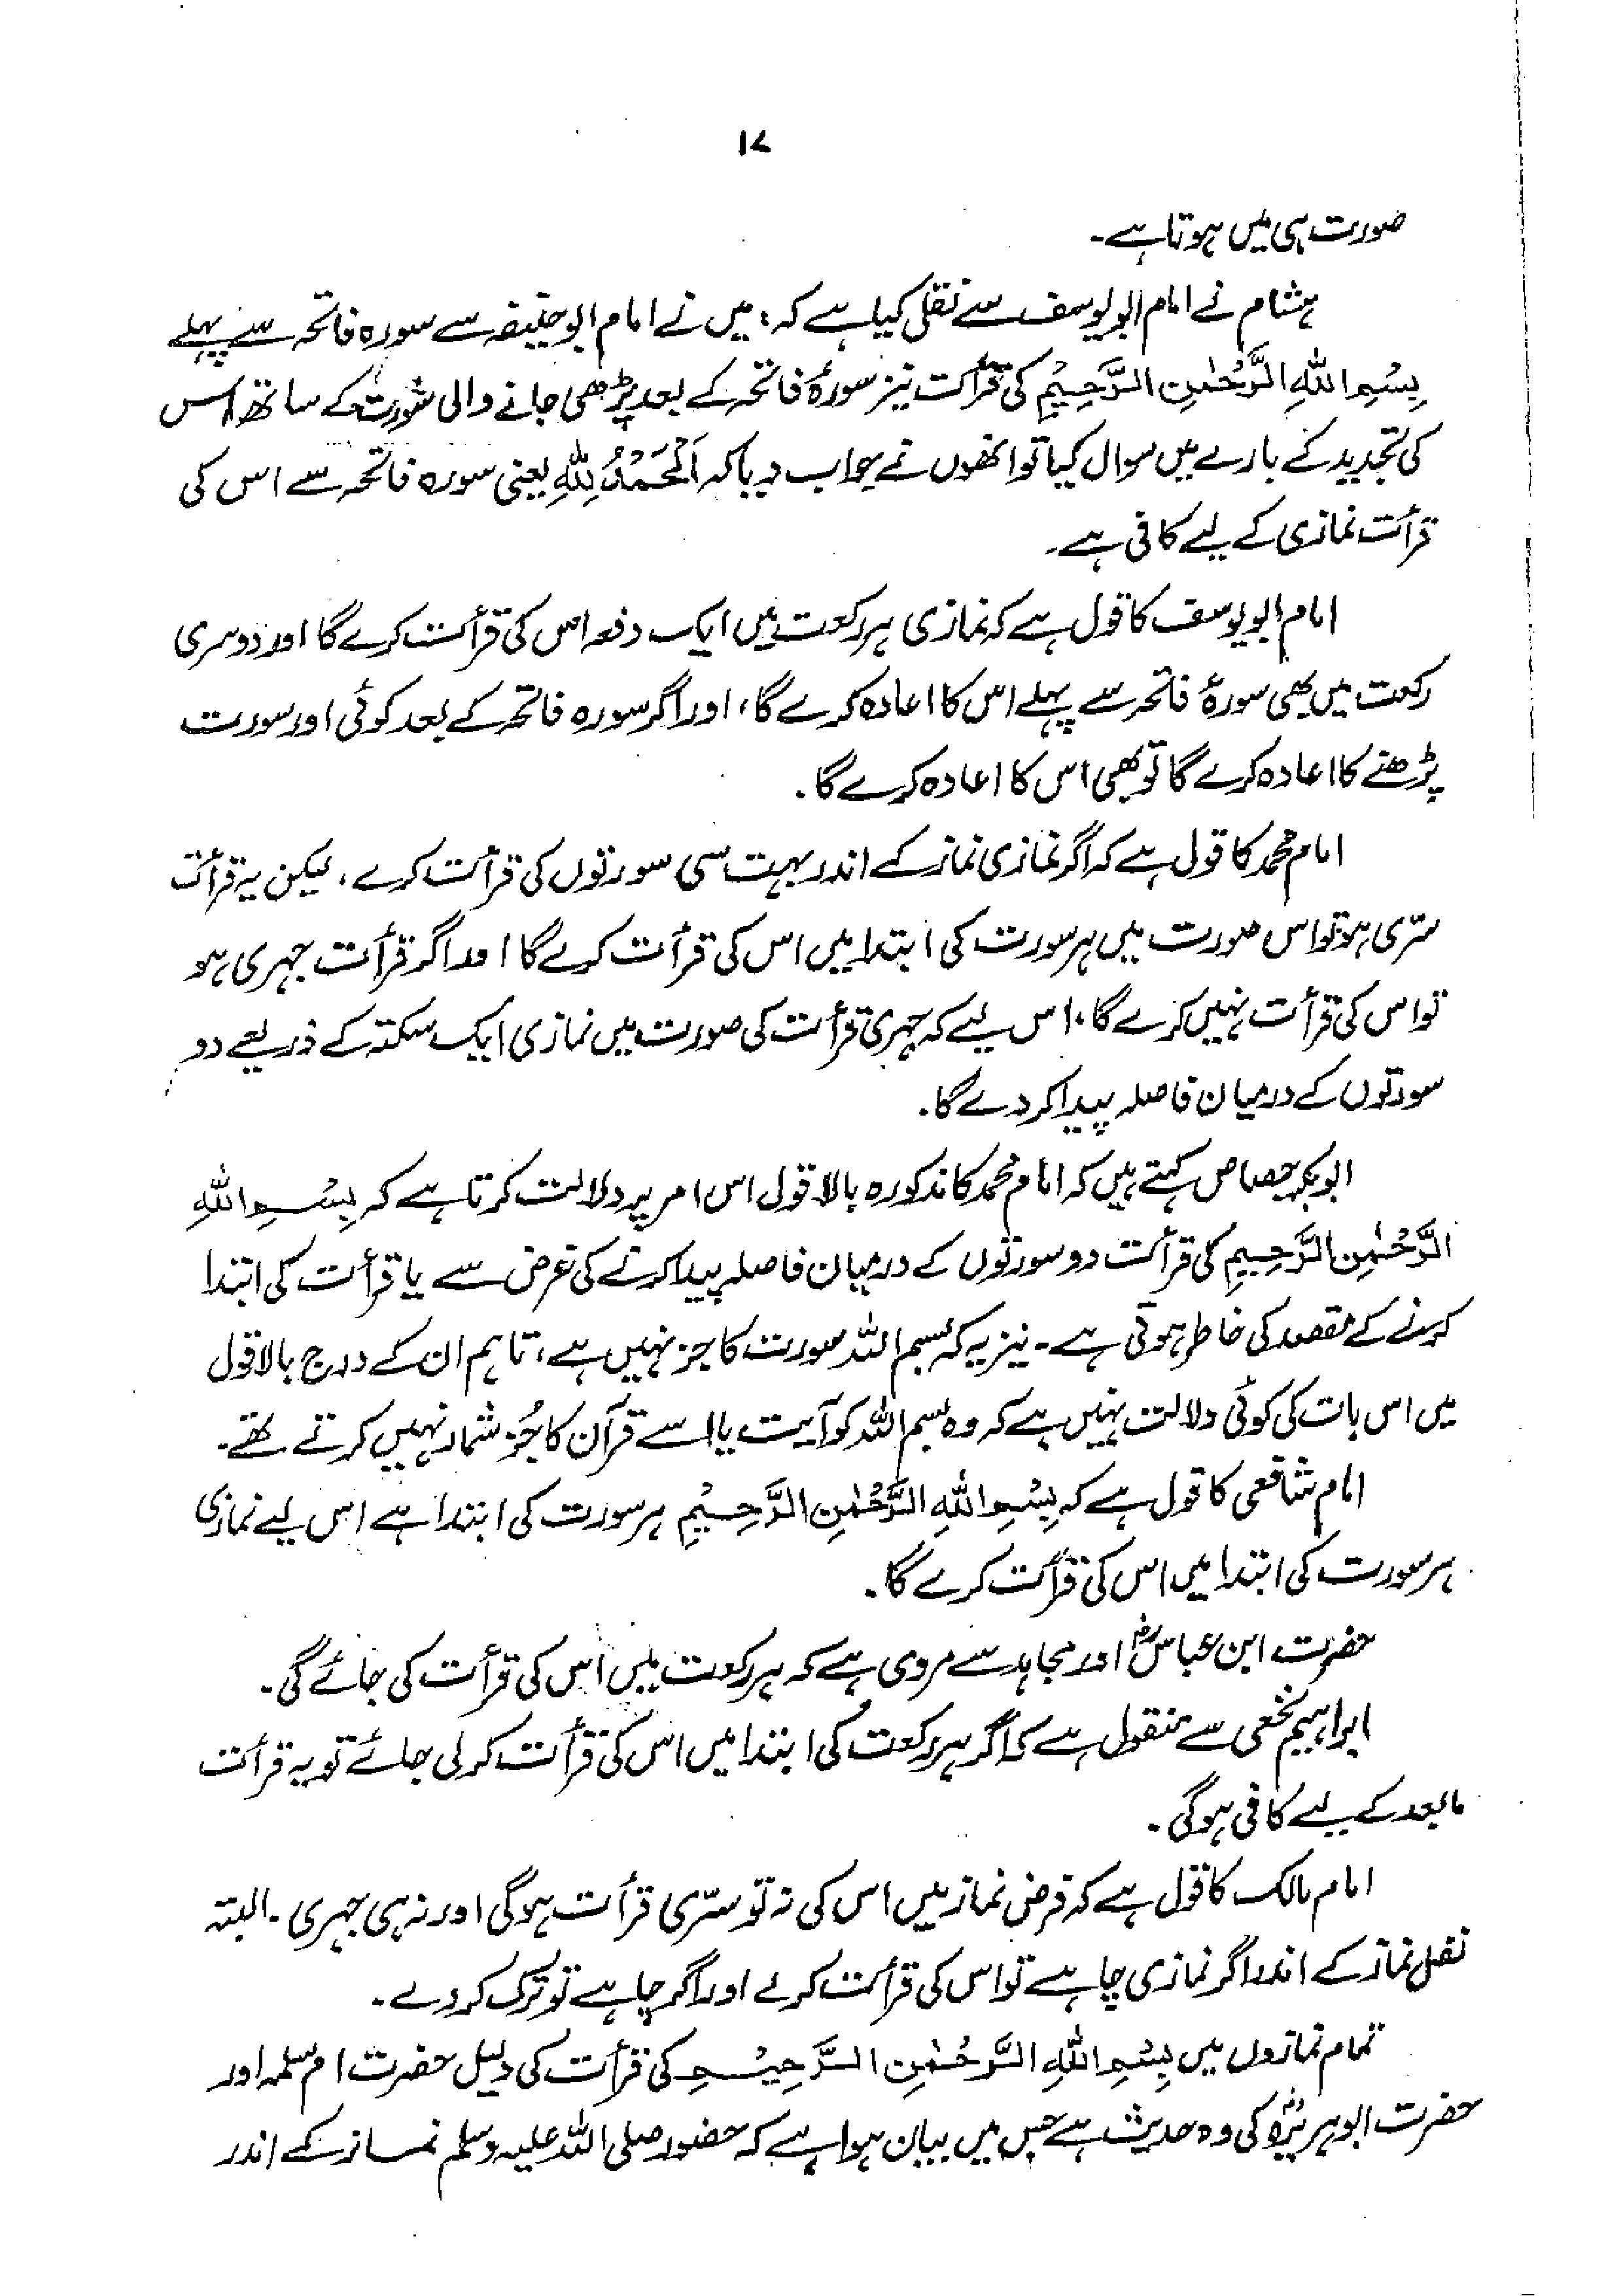 ۱۷
صورت ہی میں ہوتا ہے۔
ہشام نے امام ابویوسف سے نقل کیا ہے کہ: میں نے امام ابوحنیفہ سے سورہ فاتحہ سے پہلے
بِسْمِ اللّٰهِ الرَّحْمٰنِ الرَّحِيْمِ کی قرأت نیز سورۂ فاتحہ کے بعد پڑھی جانے والی سورت کے ساتھ اس
کی تجدید کے بارے میں سوال کیا تو انھوں نے جواب دیا کہ اَلْحَمْدُ لِلّٰهِ یعنی سورہ فاتحہ سے اس کی
قرأت نمازی کے لیے کافی ہے۔
امام ابویوسف کا قول ہے کہ نمازی ہر رکعت میں ایک دفعہ اس کی قرأت کرے گا اور دوسری
رکعت میں بھی سورۂ فاتحہ سے پہلے اس کا اعادہ کرے گا، اور اگر سورہ فاتحہ کے بعد کوئی اور سورت
پڑھنے کا اعادہ کرے گا تو بھی اس کا اعادہ کرے گا۔
امام محمد کا قول ہے کہ اگر نمازی نماز کے اندر بہت سی سورتوں کی قرأت کرے، لیکن یہ قرأت
سرّی ہو تو اس صورت میں ہر سورت کی ابتدا میں اس کی قرأت کرے گا اور اگر قرأت جہری ہو
تو اس کی قرأت نہیں کرے گا، اس لیے کہ جہری قرأت کی صورت میں نمازی ایک سکتہ کے ذریعے دو
سورتوں کے درمیان فاصلہ پیدا کر دے گا۔
ابوبکر جصاص کہتے ہیں کہ امام محمد کا مذکورہ بالا قول اس امر پر دلالت کرتا ہے کہ بِسْمِ اللّٰهِ
الرَّحْمٰنِ الرَّحِيمِ کی قرأت دو سورتوں کے درمیان فاصلہ پیدا کرنے کی غرض سے یا قرأت کی ابتدا
کرنے کے مقصد کی خاطر ہوتی ہے۔ نیز یہ کہ بسم اللہ سورت کا جز نہیں ہے، تاہم ان کے درج بالا قول
میں اس بات کی کوئی دلالت نہیں ہے کہ وہ بسم اللہ کو آیت یا اسے قرآن کا جُز شمار نہیں کرتے تھے۔
امام شافعی کا قول ہے کہ بِسْمِ اللّٰهِ الرَّحْمٰنِ الرَّحِيْمِ ہر سورت کی ابتدا ہے اس لیے نمازی
ہر سورت کی ابتدا میں اس کی قرأت کرے گا۔
حضرت ابن عباسؓ اور مجاہد سے مروی ہے کہ ہر رکعت میں اس کی قرأت کی جائے گی۔
ابراہیم نخعی سے منقول ہے کہ اگر ہر رکعت کی ابتدا میں اس کی قرأت کر لی جائے تو یہ قرأت
مابعد کے لیے کافی ہوگی۔
امام مالک کا قول ہے کہ فرض نماز میں اس کی نہ تو سرّی قرأت ہوگی اور نہ ہی جہری۔ البتہ
نفل نماز کے اندر اگر نمازی چاہے تو اس کی قرأت کرے اور اگر چاہے تو ترک کر دے۔
تمام نمازوں میں بِسْمِ اللّٰهِ الرَّحْمٰنِ الرَّحِيْمِ کی قرأت کی دلیل حضرت ام سلمہ اور
حضرت ابوہریرہؓ کی وہ حدیث ہے جس میں بیان ہوا ہے کہ حضور صلی اللہ علیہ وسلم نماز کے اندر